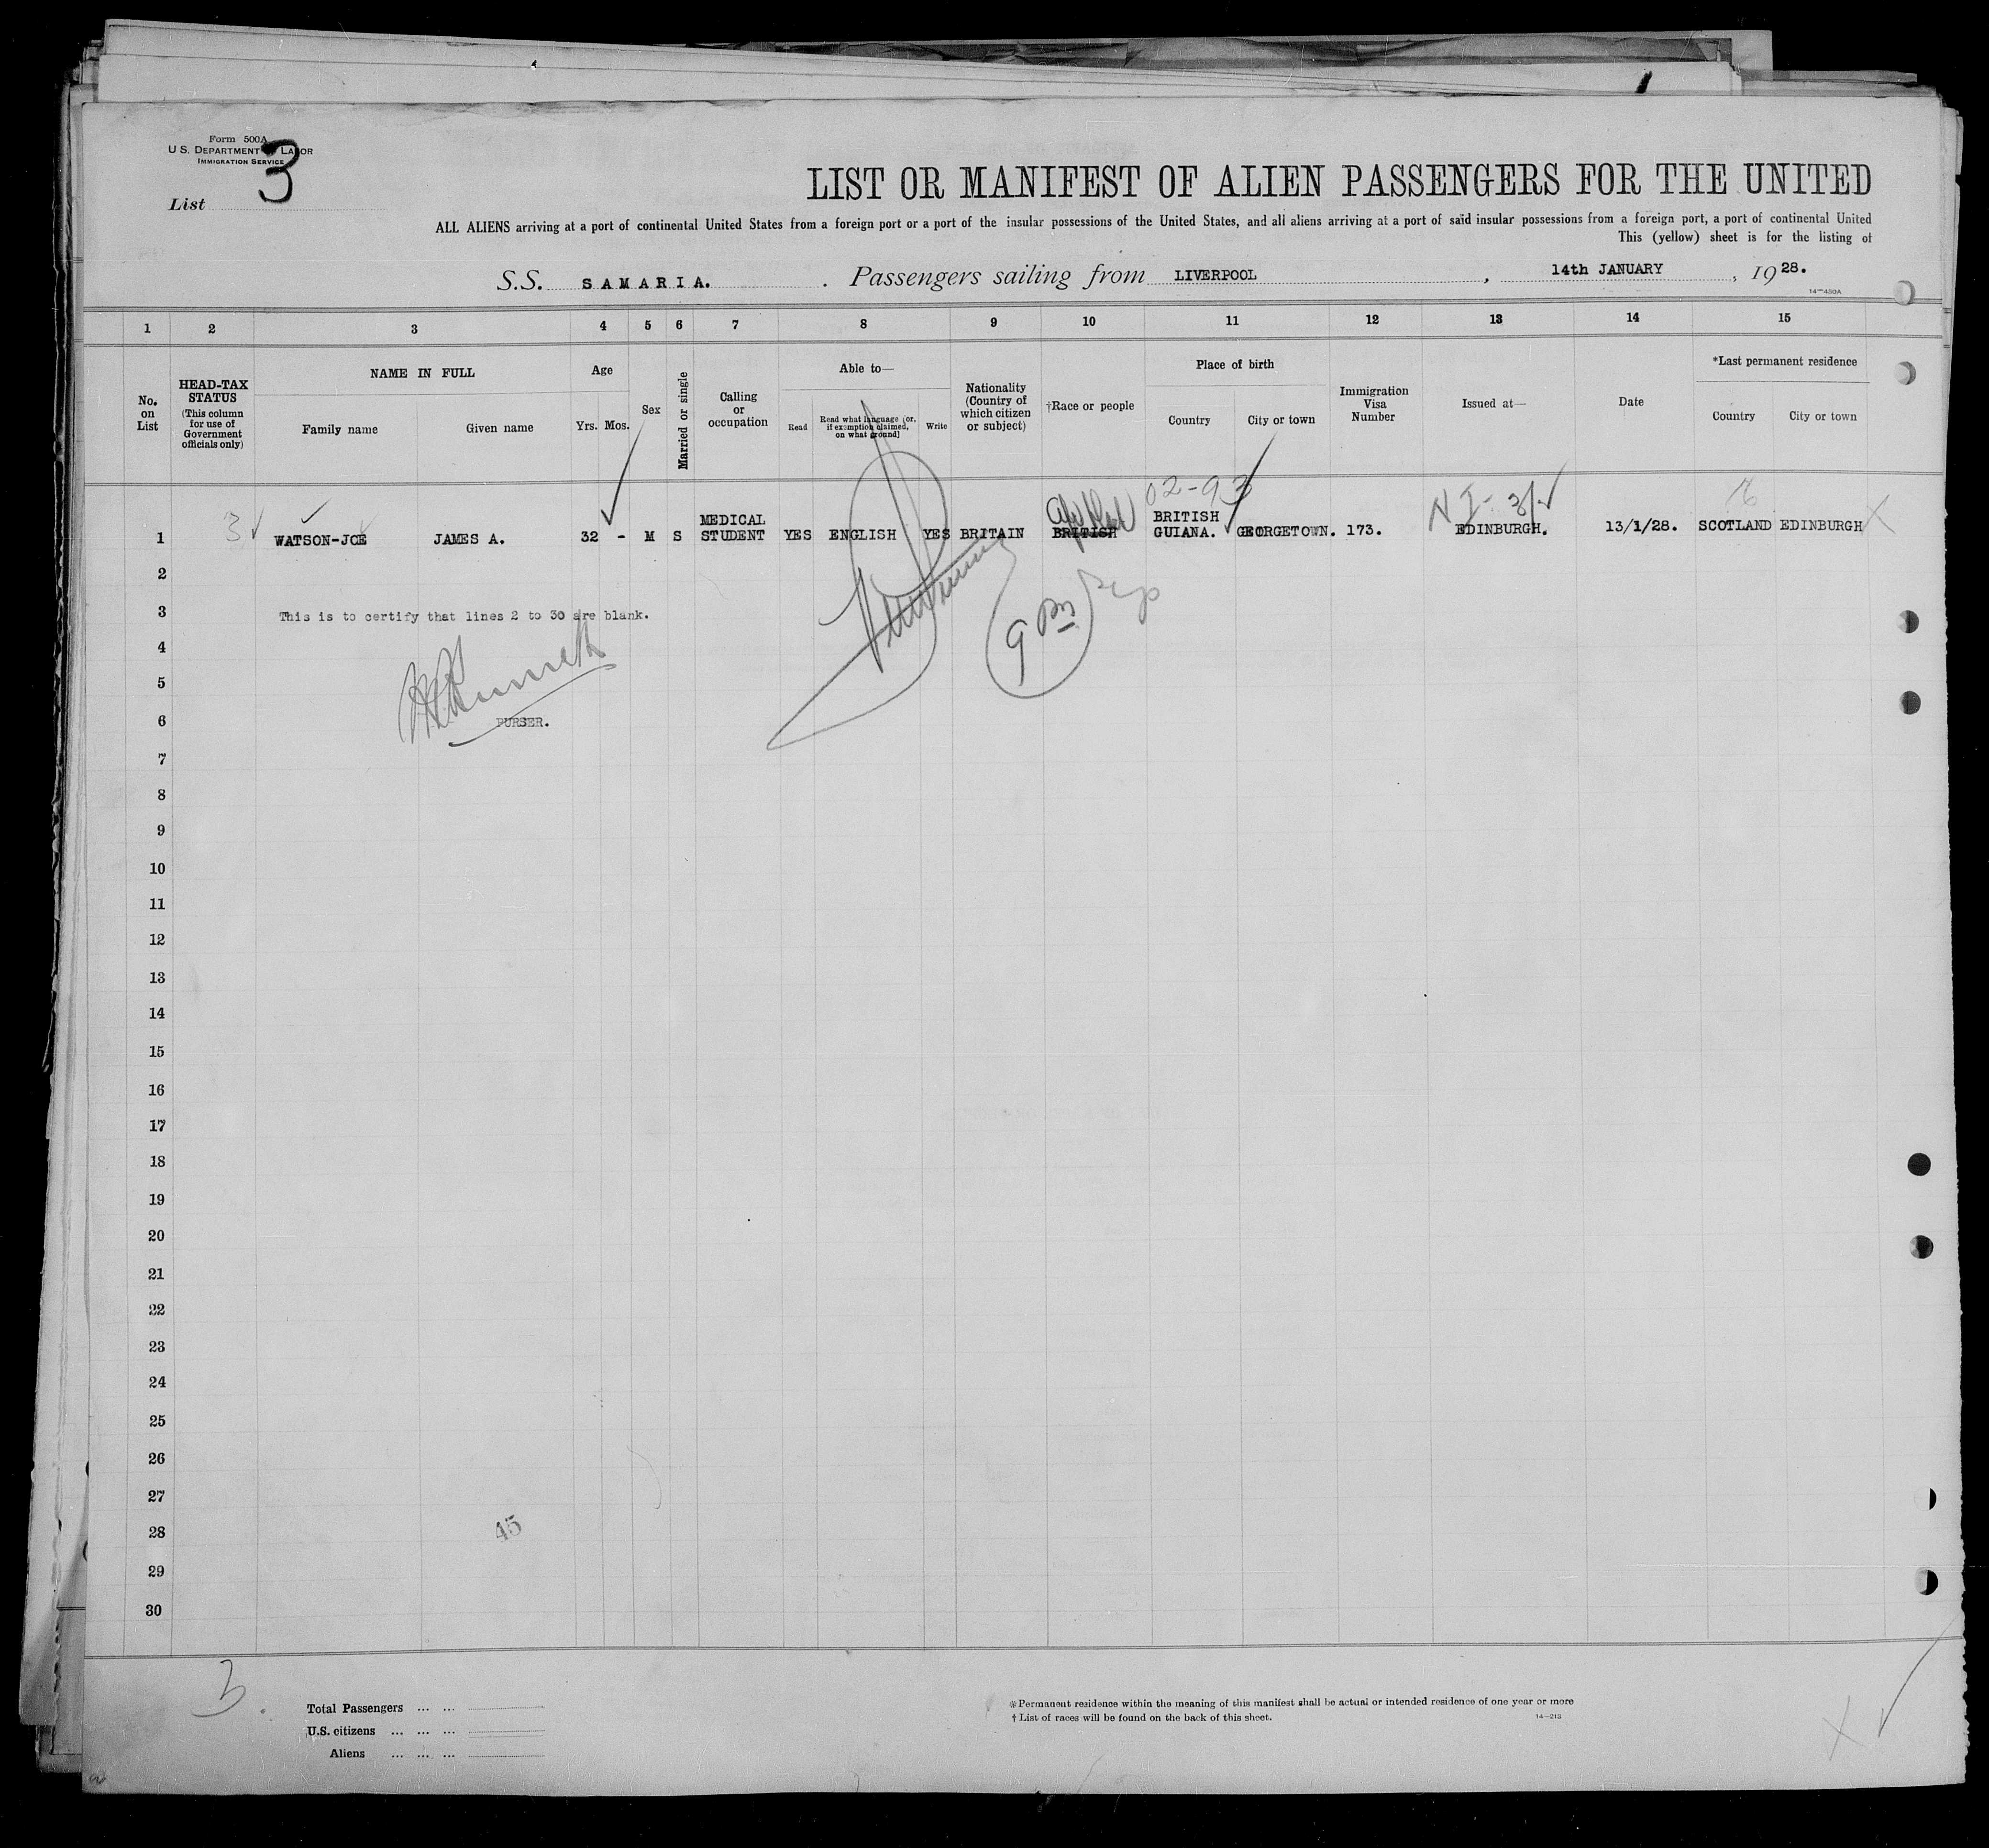 Form 500A
U.S. DEPARTMENT OF LABOR
IMMIGRATION SERVICE
3
List
LIST OR MANIFEST OF ALIEN PASSENGERS FOR THE UNITED
ALL ALIENS arriving at a port of continental United States from a foreign port or a port of the insular possessions of the United States, and all aliens arriving at a port of said insular possessions from a foreign port, a port of continental United
This (yellow) sheet is for the listing of
S.S. SAMARIA. Passengers sailing from LIVERPOOL, 14th JANUARY, 1928.
14—430A
1 2 3 4 5 6 7 8 9 10 11 12 13 14 15
No. on List
HEAD-TAX STATUS (This column for use of Government officials only)
NAME IN FULL
Family name Given name
Age
Yrs. Mos.
Sex
Married or single
Calling or occupation
Able to—
Read
Read what language [or, if exemption claimed, on what ground]
Write
Nationality (Country of which citizen or subject)
†Race or people
Place of birth
Country City or town
Immigration Visa Number
Issued at—
Date
*Last permanent residence
Country City or town
02-93
1 3 WATSON-JOE JAMES A. 32 - M S MEDICAL STUDENT YES ENGLISH YES BRITAIN BRITISH BRITISH GUIANA. GEORGETOWN. 173. EDINBURGH. 13/1/28. SCOTLAND EDINBURGH
2
3 This is to certify that lines 2 to 30 are blank.
4
5
6 PURSER.
7
8
9
10
11
12
13
14
15
16
17
18
19
20
21
22
23
24
25
26
27
28 45
29
30
3.
Total Passengers ... ...
U.S. citizens ... ... ...
Aliens ... ... ...
*Permanent residence within the meaning of this manifest shall be actual or intended residence of one year or more
†List of races will be found on the back of this sheet.
14—213